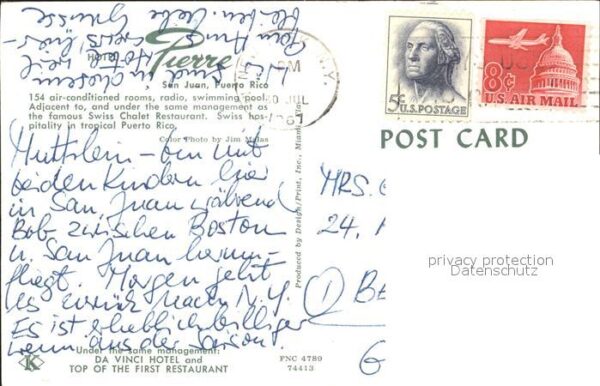 HOTEL Pierre
San Juan, Puerto Rico
154 air-conditioned rooms, radio, swimming pool.
Adjacent to, and under the same management as
the famous Swiss Chalet Restaurant. Swiss hos-
pitality in tropical Puerto Rico.
Color Photo by Jim
Muttilein - bin mit
beiden Kindern hier
in San Juan während
Bob zwischen Boston
u. San Juan herum-
fliegt. Morgen geht
es zurück nach N.Y.
Es ist erheblich billiger
wenn aus der Saison!
Sind in diesem
Hotel
bleiben. Liebe
Grüsse
Under the same management:
DA VINCI HOTEL and
TOP OF THE FIRST RESTAURANT
K
FNC 4789
74413
Produced by Design/Print, Inc., Miami
N.Y.
PM
JUL
5¢ U.S. POSTAGE
8¢
U.S. AIR MAIL
POST CARD
MRS.
24,
privacy protection
Datenschutz
① BE